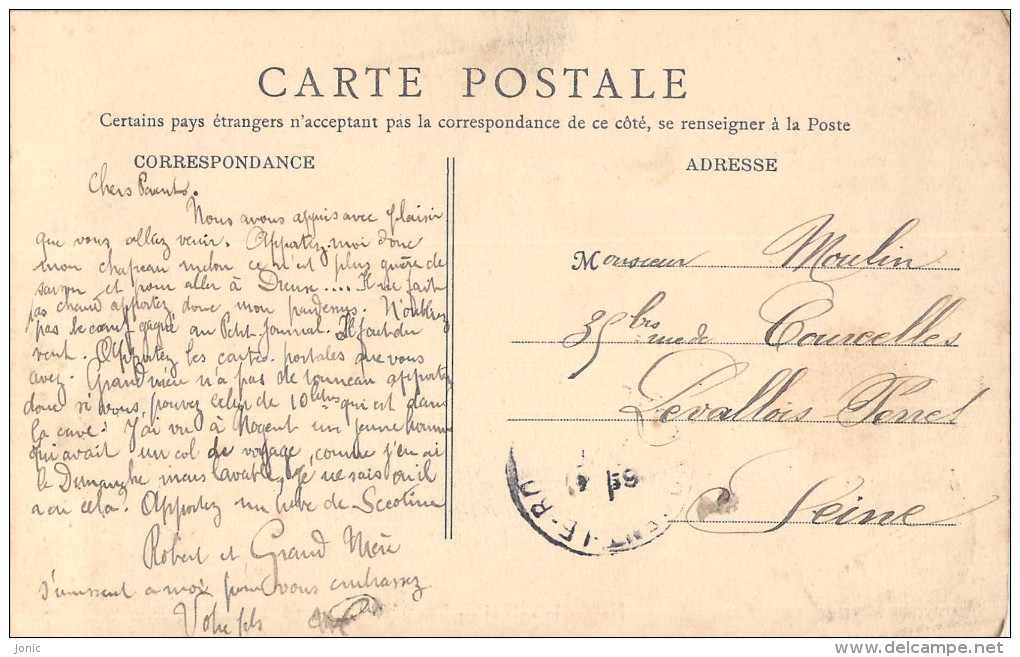 CARTE POSTALE
Certains pays étrangers n'acceptant pas la correspondance de ce côté, se renseigner à la Poste
CORRESPONDANCE
Chers Parents.
Nous avons appris avec plaisir
que vous alliez venir. Apportez-moi donc
mon chapeau melon ce n'est plus guère de
saison et pour aller à Dreux.... Il ne fait
pas chaud apportez donc mon pardessus. N'oubliez
pas le gagné au Petit Journal. Il faut du
vent. Apportez les cartes postales que vous
avez. Grand mère n'a pas de tonneau apportez
donc si vous pouvez celui de 10 litres qui est dans
la cave. J'ai vu à Nogent un jeune homme
qui avait un col de voyage, comme j'en ai
le Dimanche mais lavable, je ne sais où il
a eu cela? Apportez un tube de Seccotine
Robert et Grand Mère
s'unissent à moi pour vous embrasser
Votre fils
ADRESSE
Monsieur Moulin
35 bis rue de Courcelles
Levallois-Perret
Seine
NT-LE-RO
Jonic
www.delcampe.net